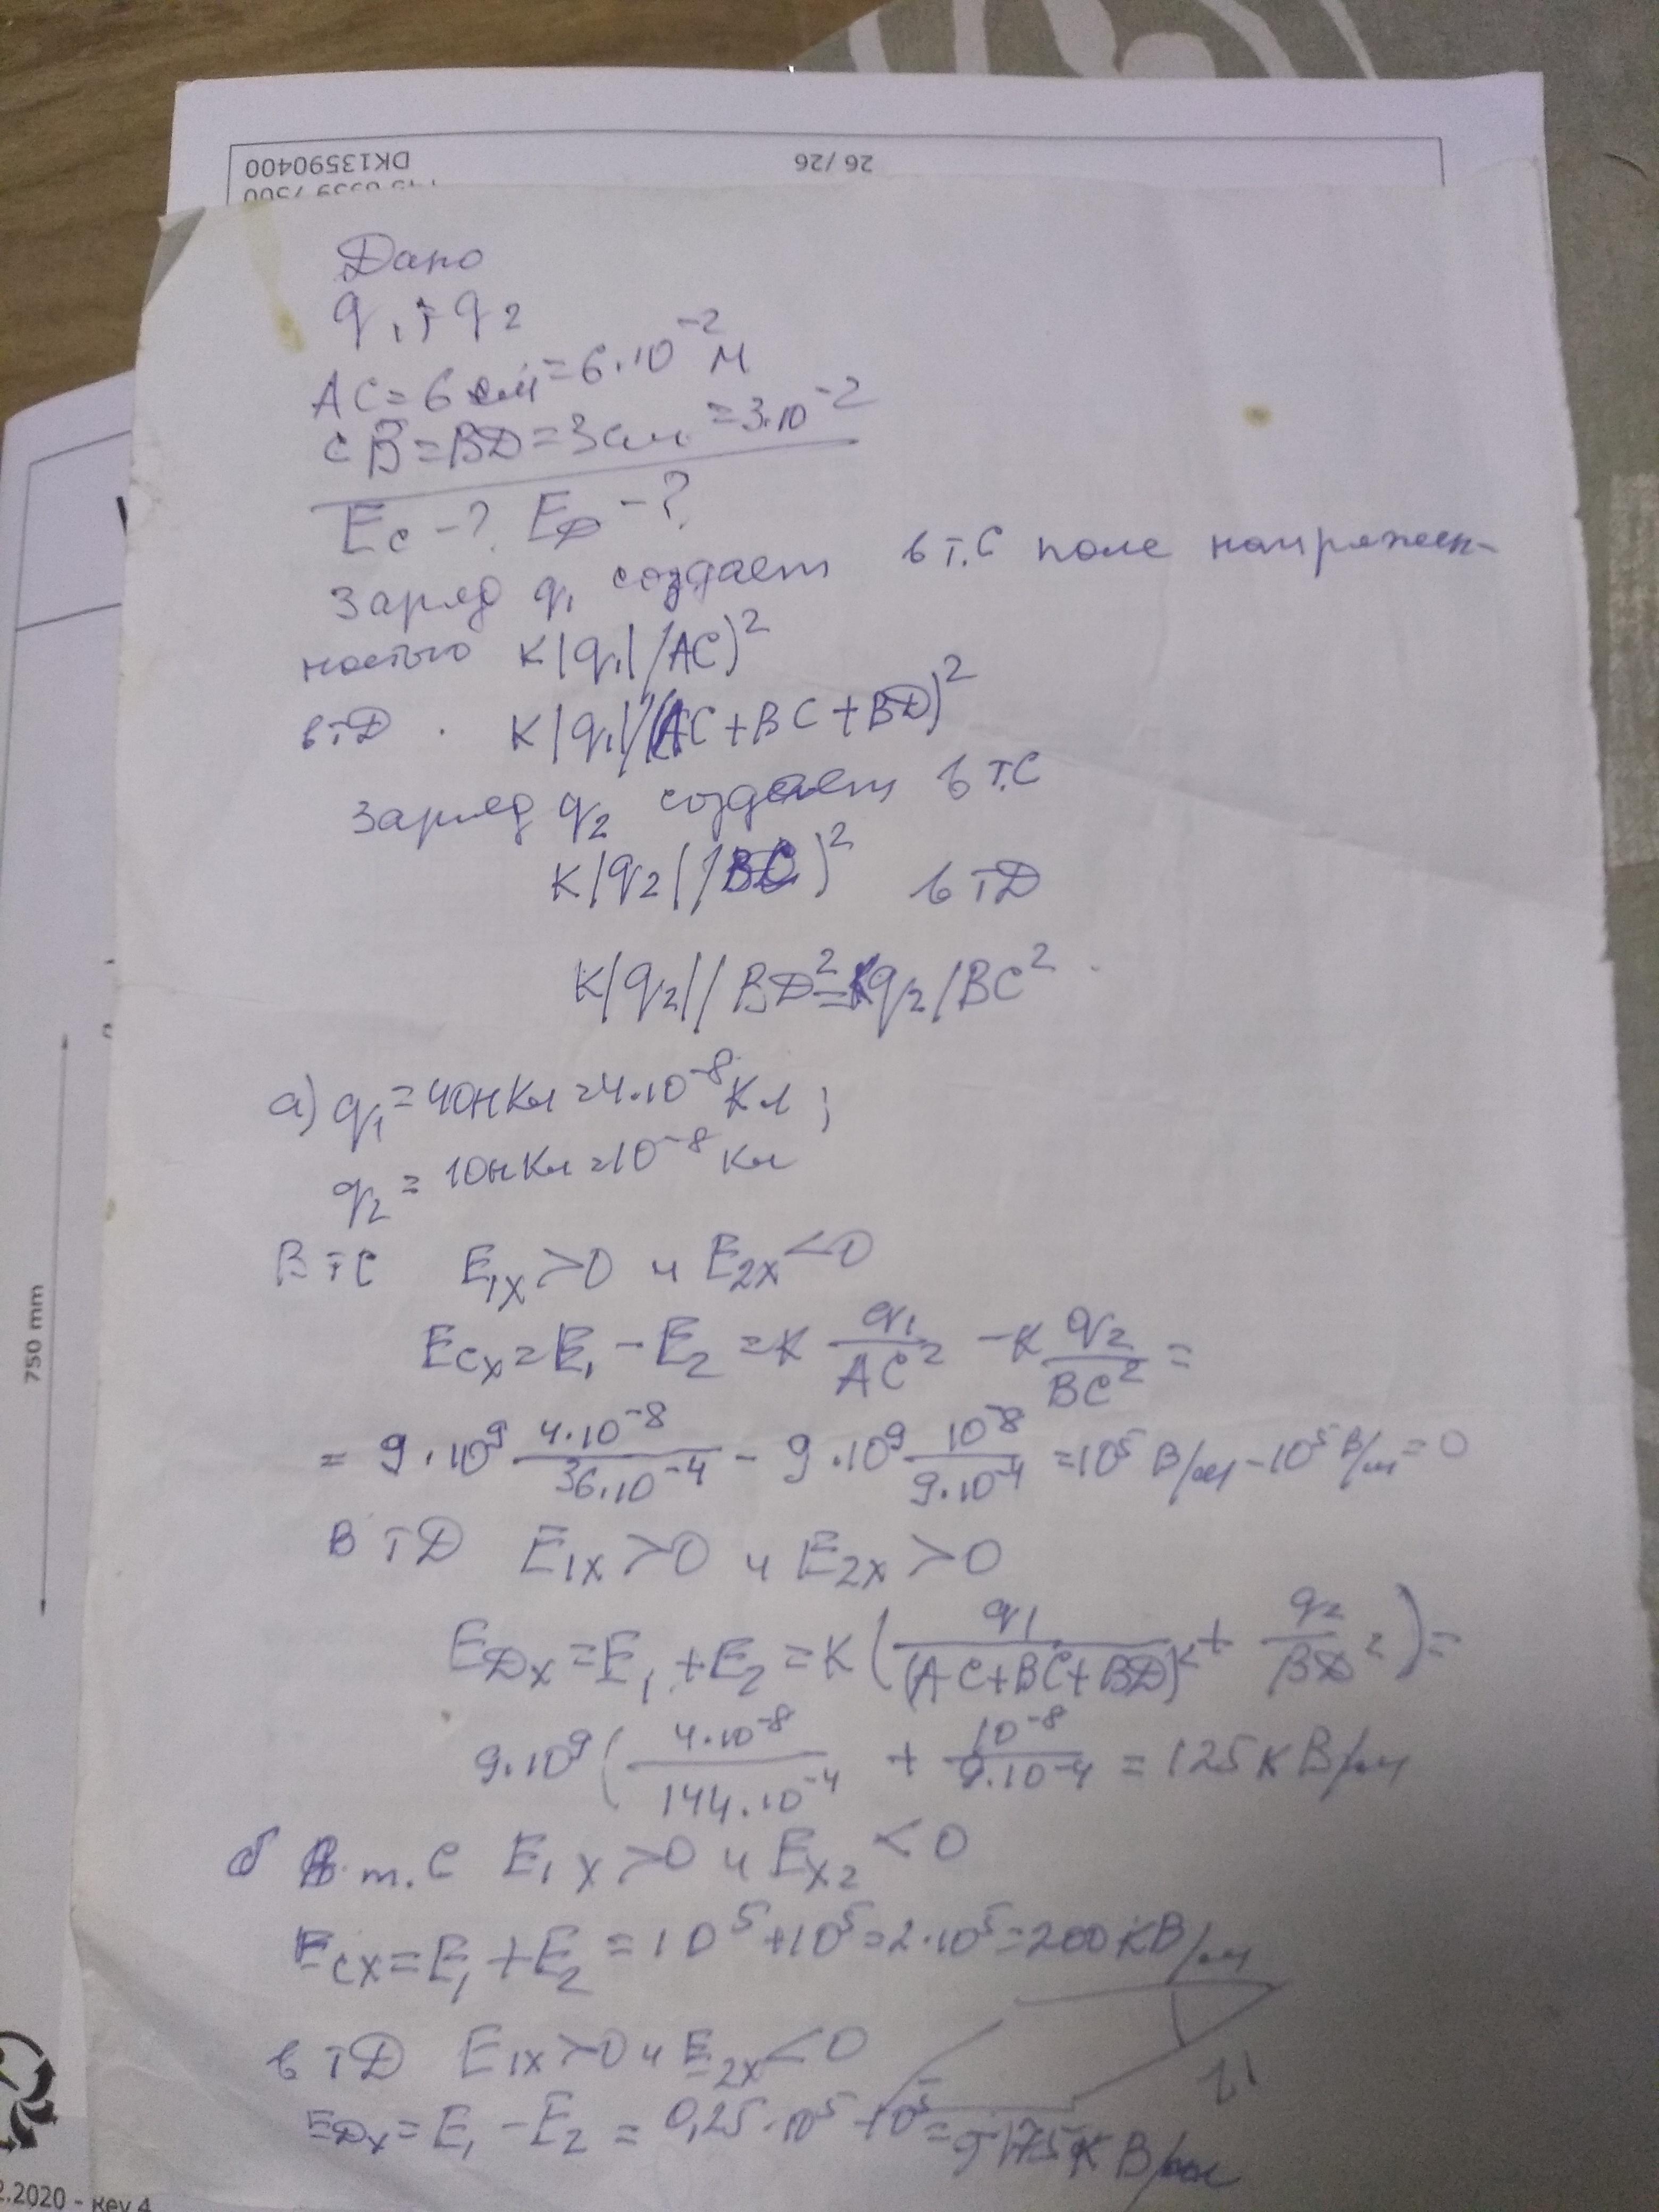 DK13590400
26 / 26
Дано
q₁, q₂
AC = 6 см = 6·10⁻² м
CB = BD = 3 см = 3·10⁻²
E_C - ? E_D - ?
Заряд q₁ создает в т.C поле напряжен-
ностью K|q₁|/AC)²
в т D. K|q₁|/(AC+BC+BD)²
Заряд q₂ создает в т.C
K|q₂|/BC)² в т D
K|q₂|/BD² = Kq₂/BC²
а) q₁ = 40нКл = 4·10⁻⁸ Кл;
q₂ = 10нКл = 10⁻⁸ Кл
В т C E₁ₓ > 0 и E₂ₓ < 0
E_Cx = E₁ - E₂ = K q₁/AC² - K q₂/BC² =
= 9·10⁹ 4·10⁻⁸/36·10⁻⁴ - 9·10⁹ 10⁻⁸/9·10⁻⁴ = 10⁵ В/м - 10⁵ В/м = 0
В т D E₁ₓ > 0 и E₂ₓ > 0
E_Dx = E₁ + E₂ = K (q₁/(AC+BC+BD)² + q₂/BD²) =
9·10⁹ (4·10⁻⁸/144·10⁻⁴ + 10⁻⁸/9·10⁻⁴ = 125 кВ/м
б В т. C E₁ₓ > 0 и Eₓ₂ < 0
E_Cx = E₁ + E₂ = 10⁵ + 10⁵ = 2·10⁵ = 200 кВ/м
в т D E₁ₓ > 0 и E₂ₓ < 0
E_Dx = E₁ - E₂ = 0,25·10⁵ - 10⁵ = кВ/м
750 mm
2.2020 - Rev 4